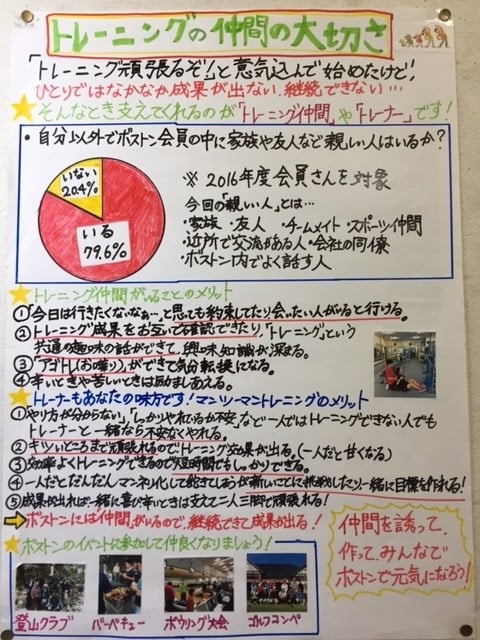 トレーニングの仲間の大切さ
「トレーニング頑張るぞ!」と意気込んで始めたけど、
ひとりではなかなか成果が出ない、継続できない…
そんなとき支えてくれるのが「トレーニング仲間」や「トレーナー」です!
・自分以外でボストン会員の中に家族や友人など親しい人はいるか?
いない
20.4%
いる
79.6%
※2016年度会員さんを対象
今回の「親しい人」とは…
・家族・友人・チームメイト・スポーツ仲間
・近所で交流がある人・会社の同僚
・ボストン内でよく話す人
トレーニング仲間がいることのメリット
①「今日は行きたくないなぁ…」と思っても約束してたり会いたい人がいると行ける。
②トレーニング成果をお互いで確認できたり、「トレーニング」という
共通の趣味の話ができて、興味・知識が深まる。
③「アゴトレ(お喋り)」ができて気分転換になる。
④辛いときや苦しいときは励ましあえる。
トレーナーもあなたの味方です!マンツーマントレーニングのメリット
①「やり方が分からない」「しっかりやれているか不安」など一人ではトレーニングできない人でも
トレーナーと一緒なら不安なくやれる。
②キツいところまで頑張れるのでトレーニング効果が出る。(一人だと甘くなる)
③効率よくトレーニングできるので短時間でもしっかりできる。
④一人だとだんだんマンネリ化して飽きてしまうが新しいことに挑戦したり一緒に目標を作れる!
⑤成果が出れば一緒に喜び辛いときは支えて二人三脚で頑張れる!
ボストンには「仲間」がいるので、継続できて成果が出る!
ボストンのイベントに参加して仲良くなりましょう!
登山クラブ
バーベキュー
ボウリング大会
ゴルフコンペ
仲間を誘って、
作って、みんなで
ボストンで元気になろう!